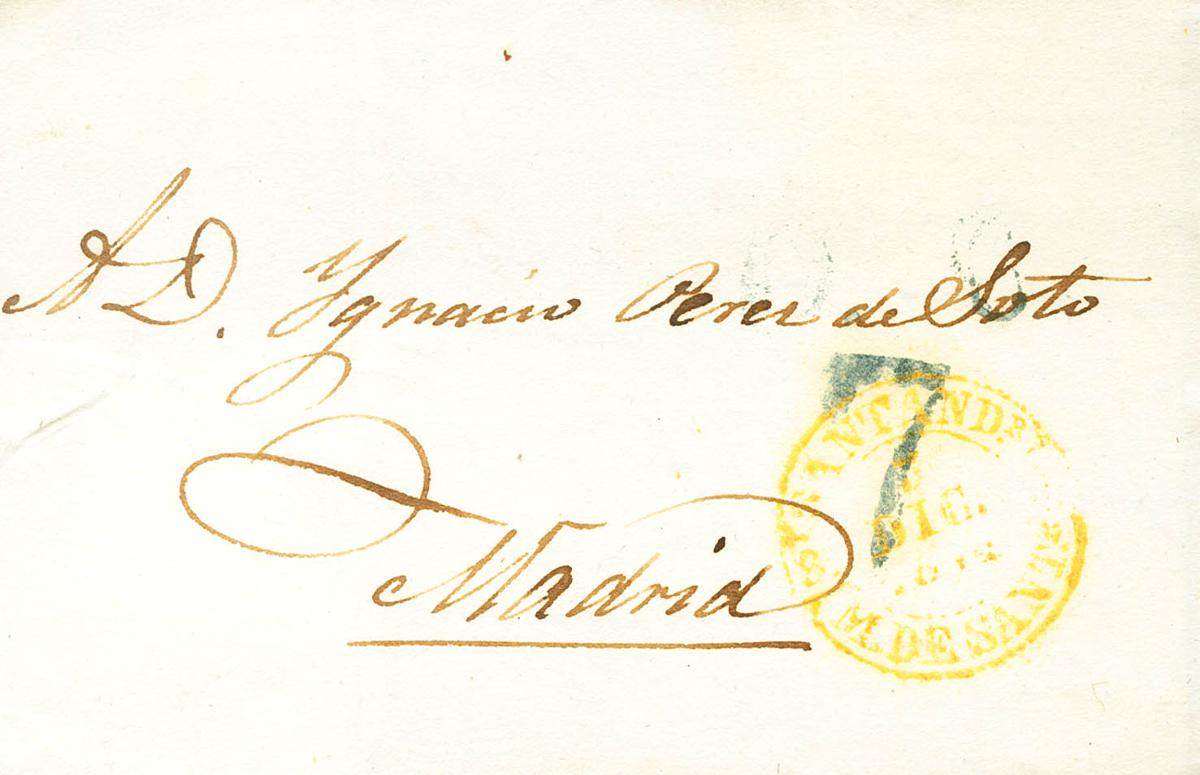 A D. Ygnacio Perez de Soto
Madrid
SANTAND.R
DIC.
M. DE SANT.R